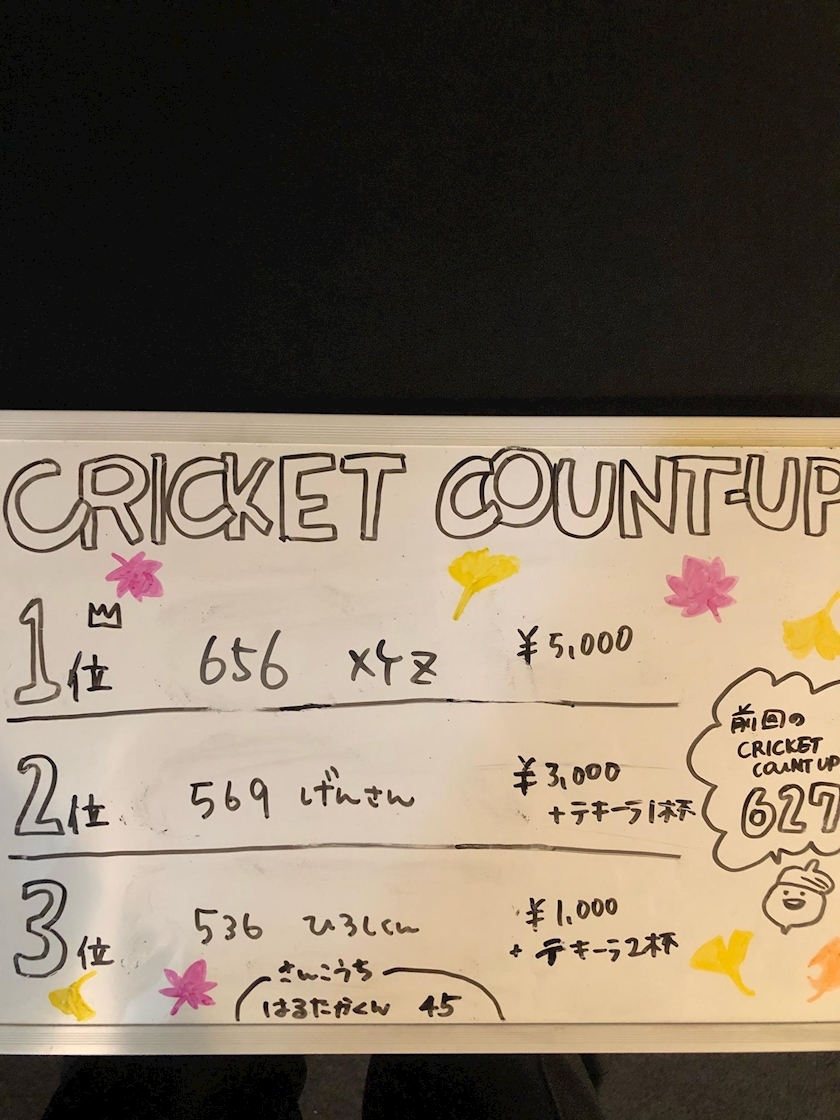 CRICKET COUNT-UP
1位 656 xYz ¥5,000
2位 569 げんさん ¥3,000
+テキーラ1杯
3位 536 ひろしくん ¥1,000
+テキーラ2杯
さんこうち
はるたかくん 45
前回の
CRICKET
COUNT UP
627